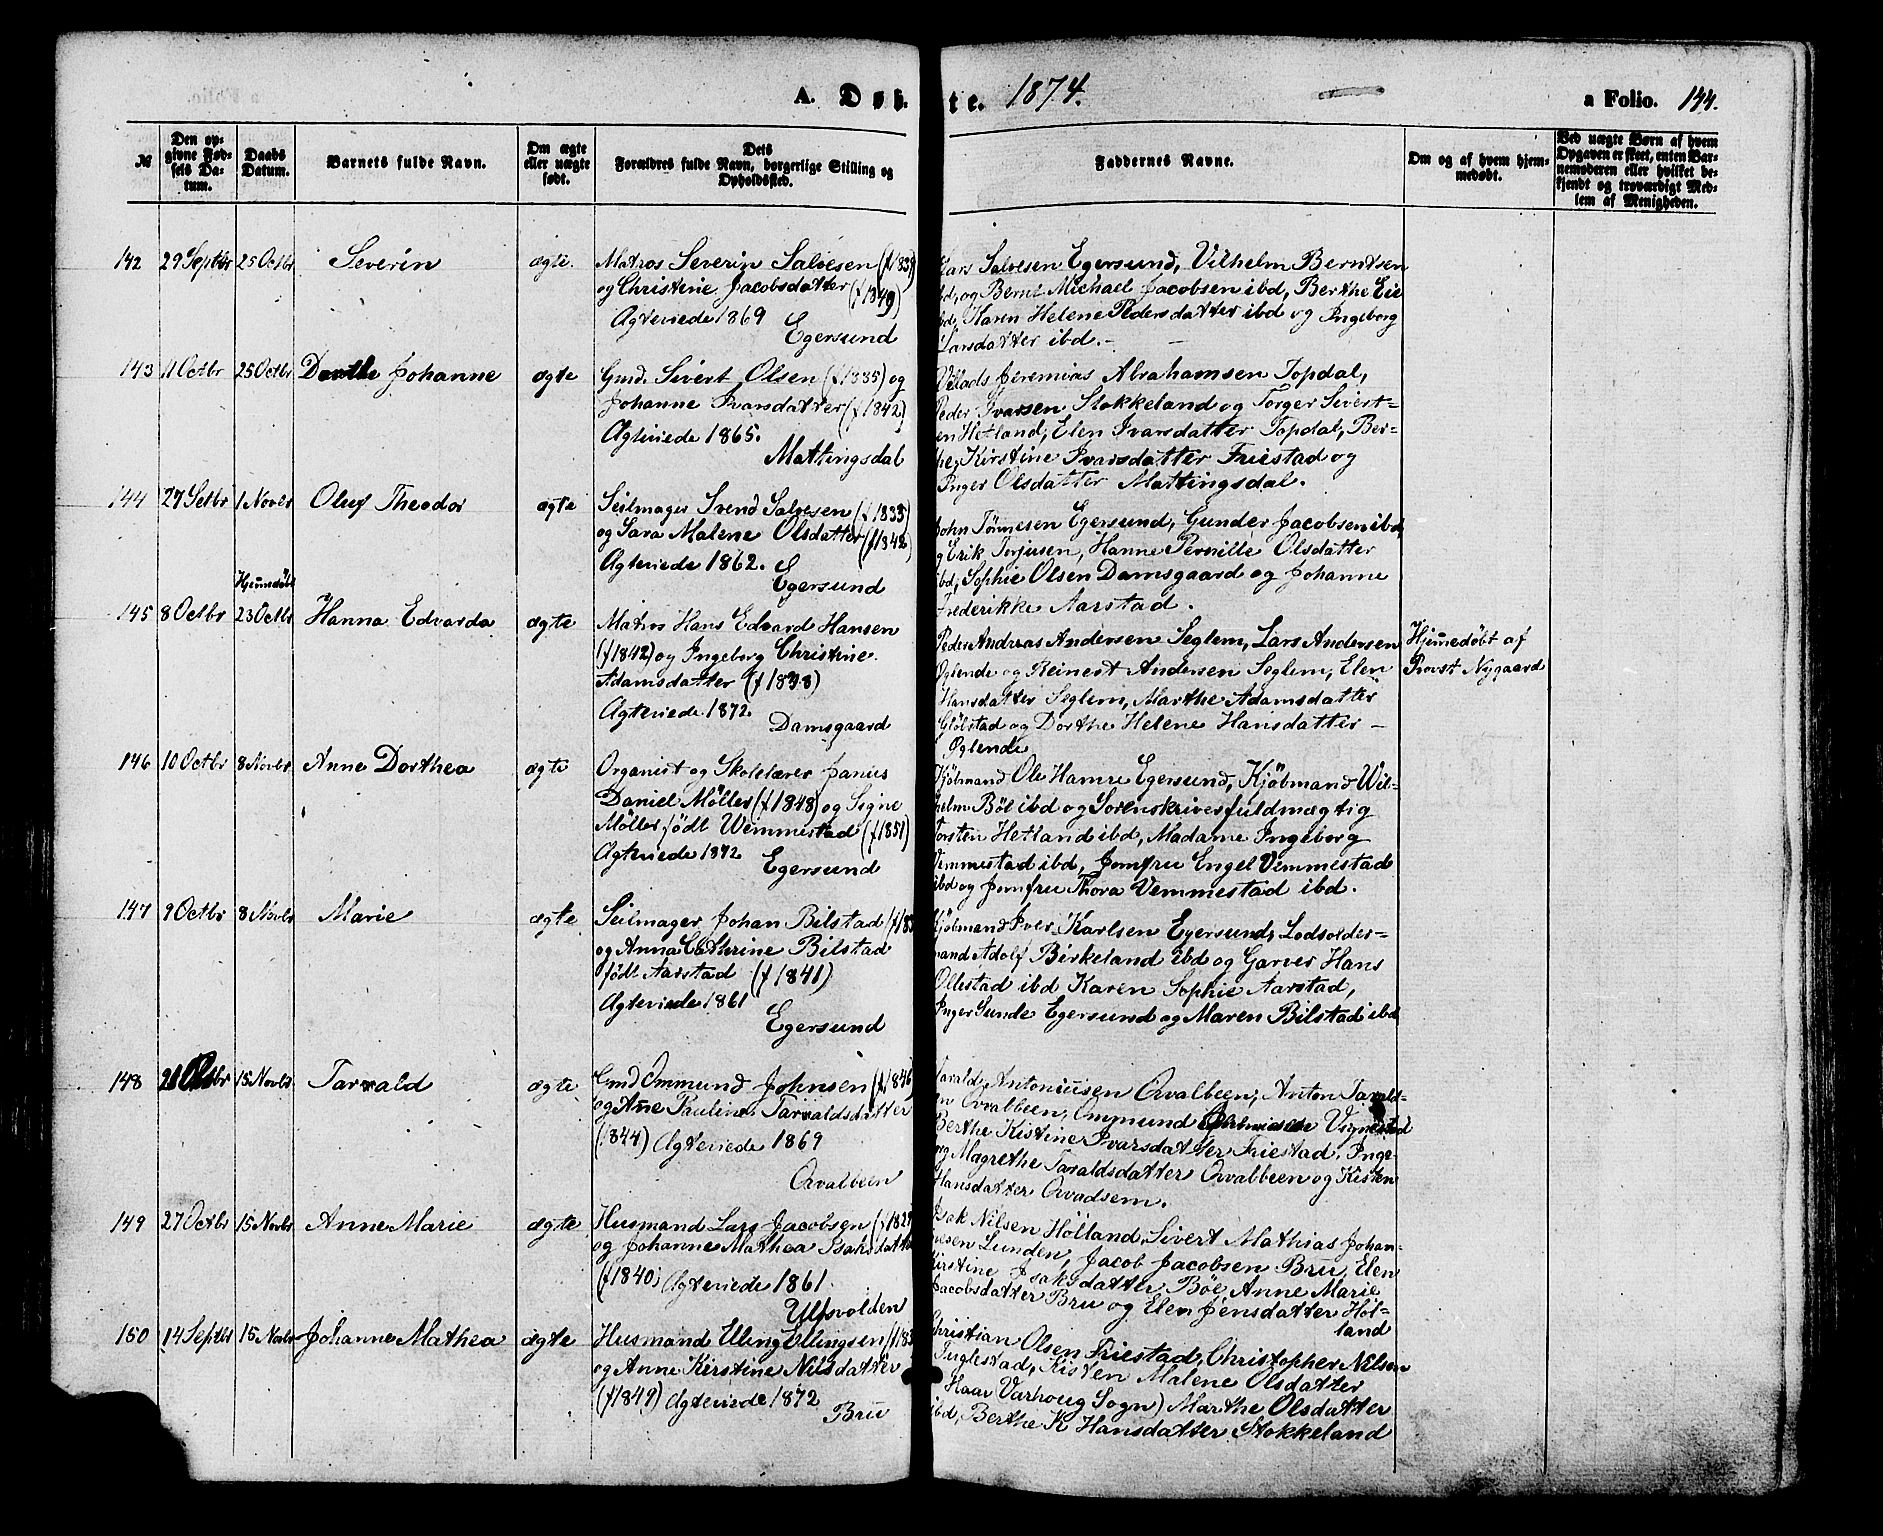 A. Døb-
te. 1874.
a Folio. 144.
№
Den op-
givne Fød-
sels Da-
tum.
Daabs
Datum.
Barnets fulde Navn.
Om ægte
eller uægte
født.
Dets
Forældres fulde Navn, borgerlige Stilling og
Opholdssted.
Faddernes Navne.
Om og af hvem hjem-
medøbt.
Ved uægte Børn af hvem
Opgaven er skeet, enten Bar-
nemoderen eller hvilket be-
kjendt og troværdigt Med-
lem af Menigheden.
142 29 Septbr 25 Octbr Severin ægte.
Matros Severin Salvesen
og Christine Jacobsdatter (f 1849)
Ægteviede 1869
Egersund
Lars Salvesen Egersund, Vilhelm Berntsen
ibd, og Bernt Michael Jacobsen ibd, Berthe Eie
ibd, Karen Helene Pedersdatter ibd og Ingeborg
Larsdatter ibd.
143 11 Octbr 25 Octbr Dorthe Johanne ægte
Gmd. Sivert Olsen (f 1835) og
Johanne Ivarsdatter (f 1842)
Ægteviede 1865.
Mattingsdal
Villads Jeremias Abrahamsen Topdal,
Peder Ivarsen Stokkeland og Torger Sivert-
sen Hetland, Elen Ivarsdatter Topdal, Ber-
the Kirstine Ivarsdatter Friestad og
Inger Olsdatter Mattingsdal.
144 27 Setbr 1 Novbr Oluf Theodor ægte
Seilmager Svend Salvesen (f 1835)
og Sara Malene Olsdatter (f 1842)
Ægteviede 1862.
Egersund
John Tönnesen Egersund, Gunder Jacobsen ibd,
og Erik Terjesen, Hanne Pernille Olsdatter
ibd, Sophie Olsen Damsgaard og Johanne
Frederikke Aarstad.
Hjemdöbt
145 8 Octbr 23 Octbr Hanna Edvarda ægte
Matros Hans Edvard Hansen
(f 1842) og Ingeborg Christine
Adamsdatter
Ægteviede 1872.
Damsgaard
Peder Andreas Andersen Seglem, Lars Andersen
Öglende og Reinert Andersen Seglem, Elen
Hansdatter Seglem, Marthe Adamsdatter
Glöbstad og Dorthe Helene Hansdatter -
Öglende
Hjemedöbt af
Provst Nygaard
146 10 Octbr 8 Novbr Anne Dorthea ægte
Organist og Skolelærer Janus
Daniel Möller (f 1848) og Signe
Möller födt Wemmestad (f 1851)
Ægteviede 1872
Egersund
Kjöbmand Ole Hamre Egersund, Kjöbmand Wil-
helm Böe ibd og Sorenskriverfuldmægtig
Torsten Hetland ibd, Madame Ingeborg
Vemmestad ibd, Jomfru Engel Vemmestad
ibd og Jomfru Thora Vemmestad ibd.
147 9 Octbr 8 Novbr Marie ægte
Seilmager Johan Bilstad
og Anna Cathrine Bilstad
födt Aarstad (f 1841)
Ægteviede 1861
Egersund
Kjöbmand Iver Karlsen Egersund, Lodsolder-
mand Adolf Birkeland ibd og Garver Hans
Ollestad ibd Karen Sophie Aarstad,
Inger Sunde Egersund og Maren Bilstad ibd
148 15 Novbr Tarvald ægte
Gmd Ommund Johnsen (f 1846)
og Ane Pauline Tarvaldsdatter
(1844) Ægteviede 1869
Qvalbeen
Tarald Antoniusen Qvalbeen, Anton Tarald-
sen Qvalbeen, Ommund Vignestad
Berthe Kistine Ivarsdatter Friestad, Inge-
borg Magrethe Taraldsdatter Qvalbeen og Kisten
Hansdatter Qvadsem.
149 27 Octbr 15 Novbr Anne Marie ægte
Husmand Lars Jacobsen
og Johanne Mathea Isaksdatter
(f 1840) Ægteviede 1861.
Ulvsvolden
Isak Nilsen Hölland, Sivert Mathias Johan-
nesen Lunden, Jacob Jacobsen Bru, Elen
Kirstine Isaksdatter Böe, Anne Marie
Jacobsdatter Bru og Elen Jensdatter Höl-
land
150 14 Septbr 15 Novbr Johanne Mathea ægte
Husmand Elling Ellingsen
og Anne Kirstine Nilsdatter
(f 1849) Ægteviede 1872
Bru
Christian Olsen Friestad, Christopher Nilsen
Fuglestad, Kisten Malene Olsdatter
Haar Varhoug Sogn) Marthe Olsdatter
ibd, Berthe K Hansdatter Stokkeland